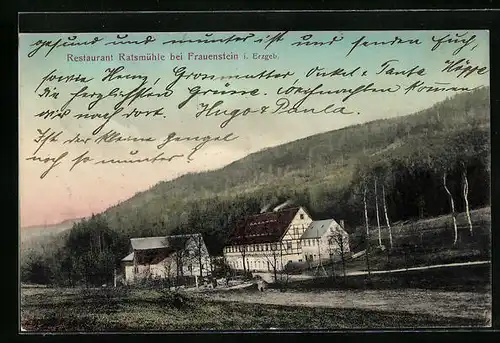 gesund und munter ist und senden Euch,
Restaurant Ratsmühle bei Frauenstein i. Erzgeb.
sowie Grossmutter Onkel u. Tante Höppe
die herzlichsten Grüsse. Weihnachten kommen
wir noch. Hugo & Paula.
Ist der kleine Bengel
noch so munter